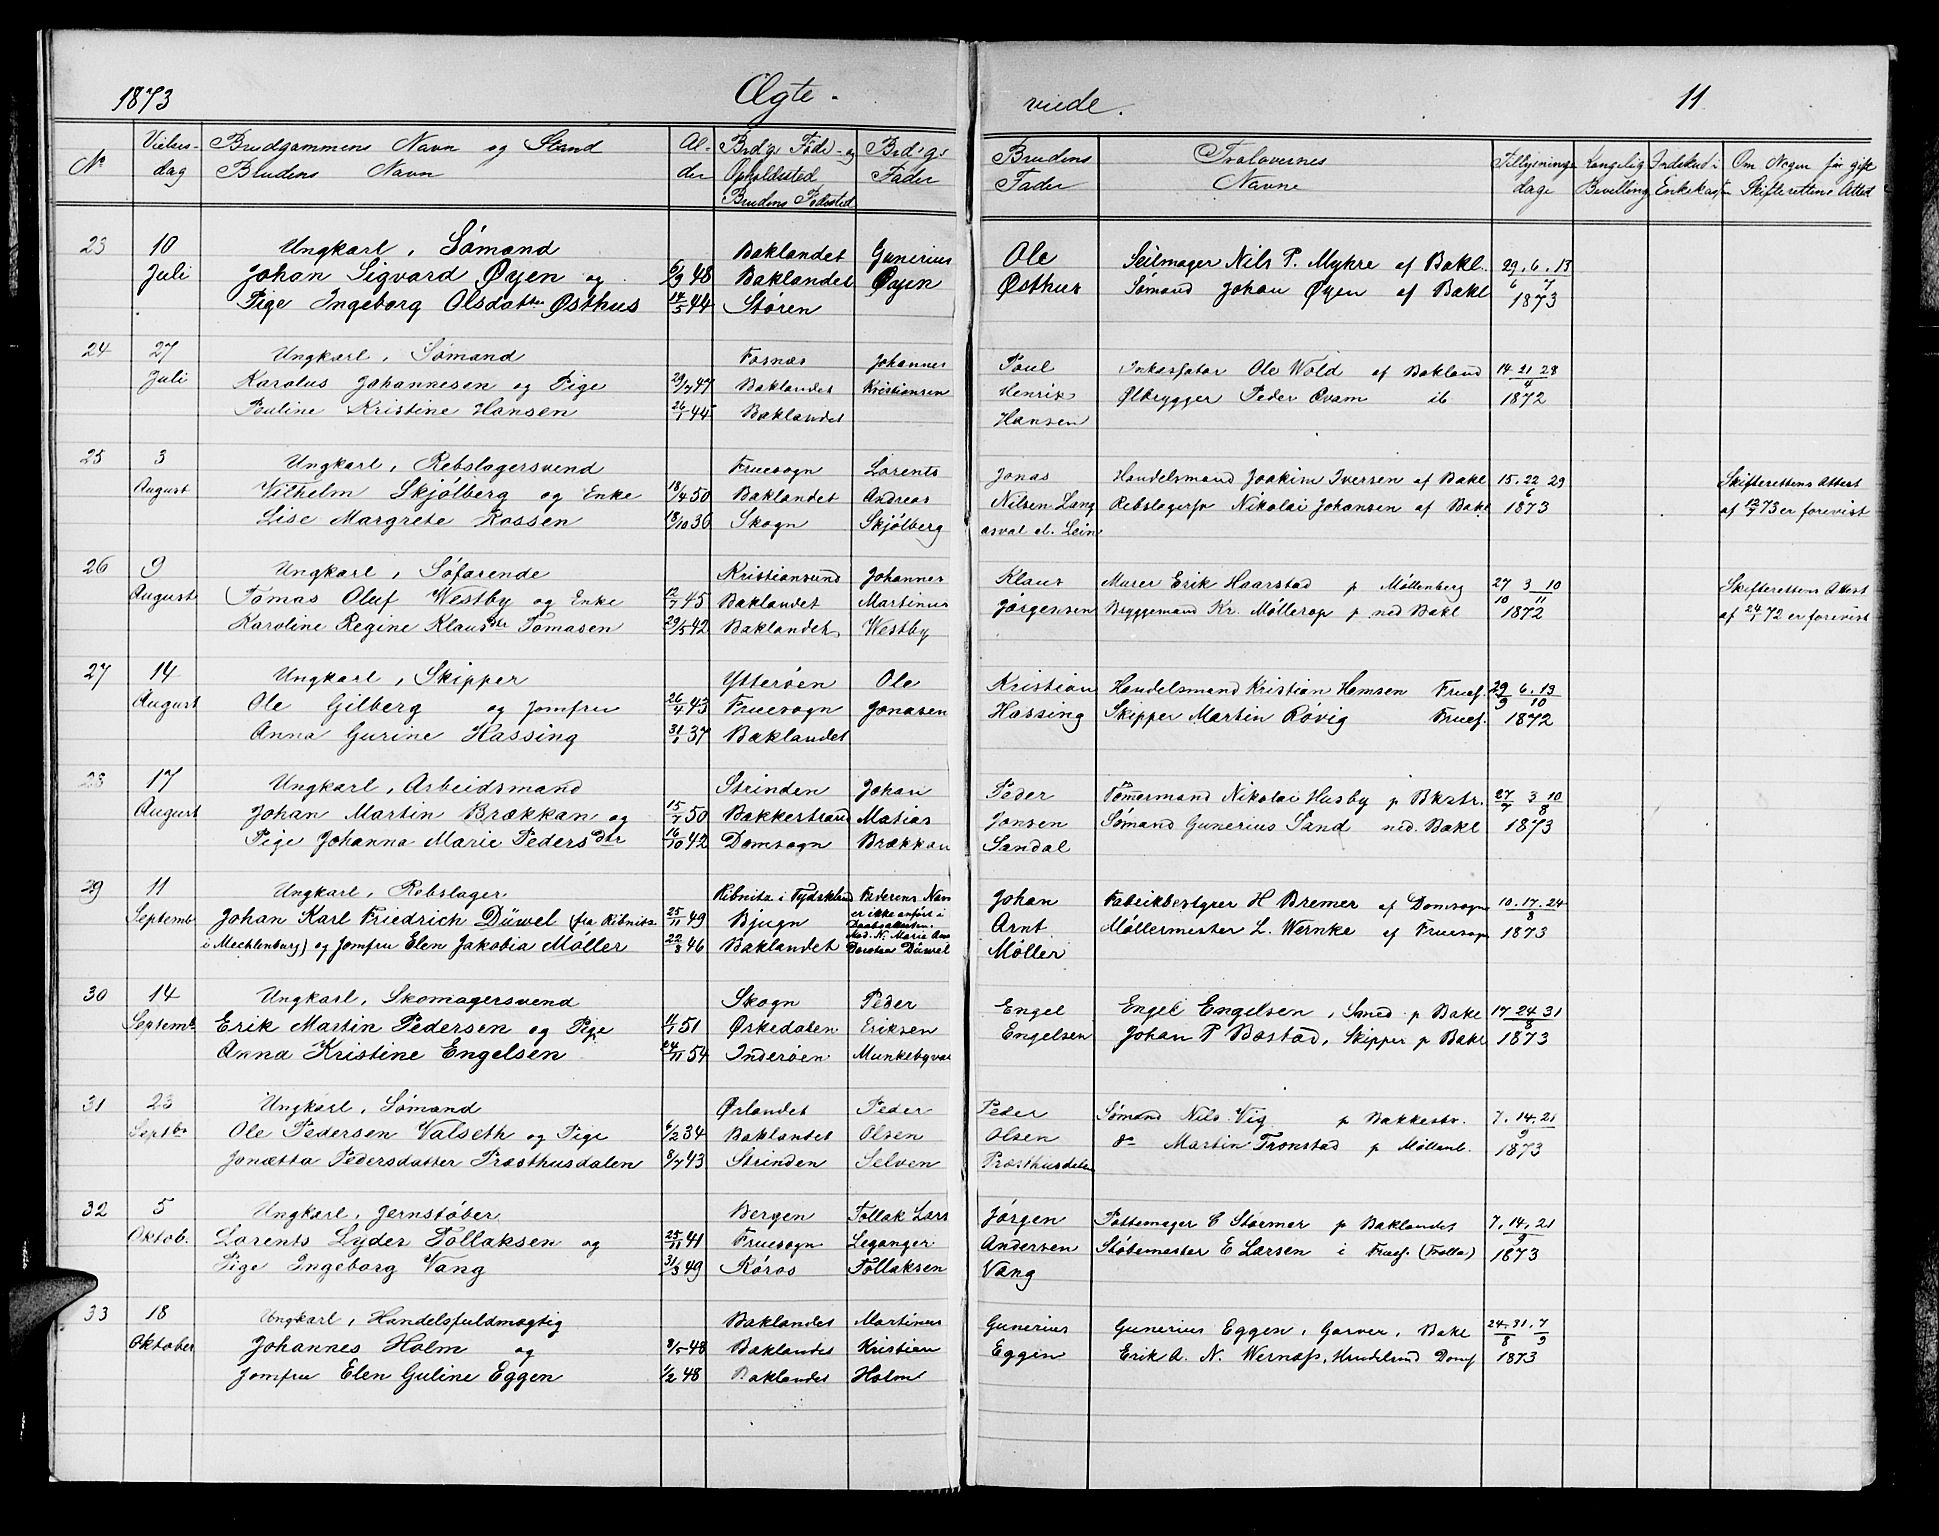 1873 Ægte- viede. 11
No Vielses- Brudgommens Navn og Stand Al- Brdg. Føde- og Brdg.s Brudens Forlovernes Tillysnings Kongelig Indskud i Om Nogen før gift
dag Brudens Navn der Opholdssted Fader Fader Navne dage Bevilling Enkekassen Skifterettens Attest
Brudens Fødested
23 10 Ungkarl, Sømand Baklandet Gunerius Ole Seilmager Nils P. Myhre af Bakl. 29. 6. 13
Juli Johan Sigvard Øyen og 6/9 48 Baklandet Øyen Østhus Sømand Johan Øyen af Bakl 6 7
Pige Ingeborg Olsdatter Østhus 14/5 44 Støren 1873
24 27 Ungkarl, Sømand Fosnæs Johannes Poul Inkassator Ole Wold af Bakland 14. 21 28
Juli Karolus Johannesen og Pige 29/7 47 Baklandet Kristiansen Henrik Ølbrygger Peder Qvam ib 4
Pauline Kristine Hansen 26/1 44 Baklandet Hansen 1872
25 3 Ungkarl, Rebslagersvend Fruesogn Lorents Jonas Handelsmand Joakim Iversen af Bakl 15. 22 29 Skifterettens Attest
August Vilhelm Skjølberg og Enke 18/4 50 Baklandet Andreas Nilsen Lang Rebslagersv Nikolai Johansen af Bakl 6 1873 af 73 er forevist
Lise Margrete Rossen 18/10 36 Skogn Skjølberg asval el. Lein
26 9 Ungkarl, Søfarende Kristiansund Johannes Klaus Murer Erik Haarstad p Møllenberg 27 3 10 Skifterettens Attest
August Tomas Oluf Westby og Enke 12/7 45 Baklandet Martinus Jørgensen Bryggemand Kr. Møllerop p. ned Bakl 10 11
Karoline Regine Klausdtr Tomasen 29/5 42 Baklandet Westby 1872 af 24/7 72 er forevist
27 14 Ungkarl, Skipper Ytterøen Ole Kristian Handelsmand Kristian Hemsen Fruef. 29 6. 13
August Ole Gilberg og Jomfru 26/4 43 Fruesogn Jonasen Hassing Skipper Martin Røvig Fruef. 9 10
Anna Gurine Hassing 31/1 37 Baklandet 1872
28 17 Ungkarl, Arbeidsmand Strinden Johan Peder Tømmermand Nikolai Husby p Bkstr. 27 3 10
August Johan Martin Brækkan og 15/7 50 Bakkestrand Matias Jonsen Sømand Gunerius Sand ned. Bakl 7 8
Pige Johanna Marie Pedersdtr 16/10 42 Domsogn Brækkan Sandal 1873
29 11 Ungkarl, Rebslager Ribnitz i Tydskland Faderens Navn Johan Fabrikbestyrer H Bremer af Domsogn 10. 17. 24
Septemb Johan Karl Friedrich Düwel (fra Ribnits 25/11 49 Bjugn er ikke anført i Arnt Møllermester L. Wernke af Fruesogn 8 1873
i Mechlenburg) og Jomfru Elen Jakobia Møller 22/3 46 Baklandet Daabsattesten. Mod. N. Marie Dorotea Düwel Møller
30 14 Ungkarl, Skomagersvend Skogn Peder Engel Engel Engelsen, Smed p Bakl 17 24 31
Septemb. Erik Martin Pedersen og Pige 4/1 51 Ørkedalen Eriksen Engelsen Johan P Bostad, Skipper p Bakl 8
Anna Kristine Engelsen 24/11 54 Inderøen Munkebyval 1873
31 23 Ungkarl, Sømand Ørlandet Peder Peder Sømand Nils Vig p Bakkestr. 7. 14. 21
Septbr Ole Pedersen Valseth og Pige 6/2 34 Baklandet Olsen Olsen do Martin Tronstad p Møllenb. 9
Jonætta Pedersdatter Præsthusdalen 8/7 43 Strinden Selven Præsthusdalen 1873
32 5 Ungkarl, Jernstøber Bergen Tollak Lars Jørgen Pottemager C Størmer p Baklandet 7. 14. 21
Oktob. Lorents Lyder Tollaksen og 25/11 41 Fruesogn Leganger Andersen Støbemester E Larsen i Fruef. (Trolla) 9
Pige Ingeborg Vang 31/3 49 Røros Tollaksen Vang 1873
33 18 Ungkarl, Handelsfuldmægtig Baklandet Martinus Gunerius Gunerius Eggen, Garver, Bakl 24. 31. 7
Oktober Johannes Holm og 3/5 48 Baklandet Kristian Eggen Erik A. N. Wernøss, Handelsmd Domf 8 9
Jomfru Elen Guline Eggen 1/2 48 Baklandet Holm 1873